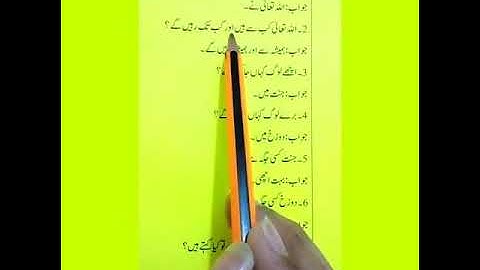 جواب: اللہ تعالیٰ نے۔
2۔ اللہ تعالیٰ کب سے ہیں اور کب تک رہیں گے؟
جواب: ہمیشہ سے اور ہمیشہ رہیں گے۔
3۔ اچھے لوگ کہاں
جواب: جنت میں۔
4۔ برے لوگ کہاں گے؟
جواب: دوزخ میں۔
5۔ جنت کیسی جگہ
جواب: بہت اچھی۔
6۔ دوزخ کیسی جگہ
تو کیا کہتے ہیں؟